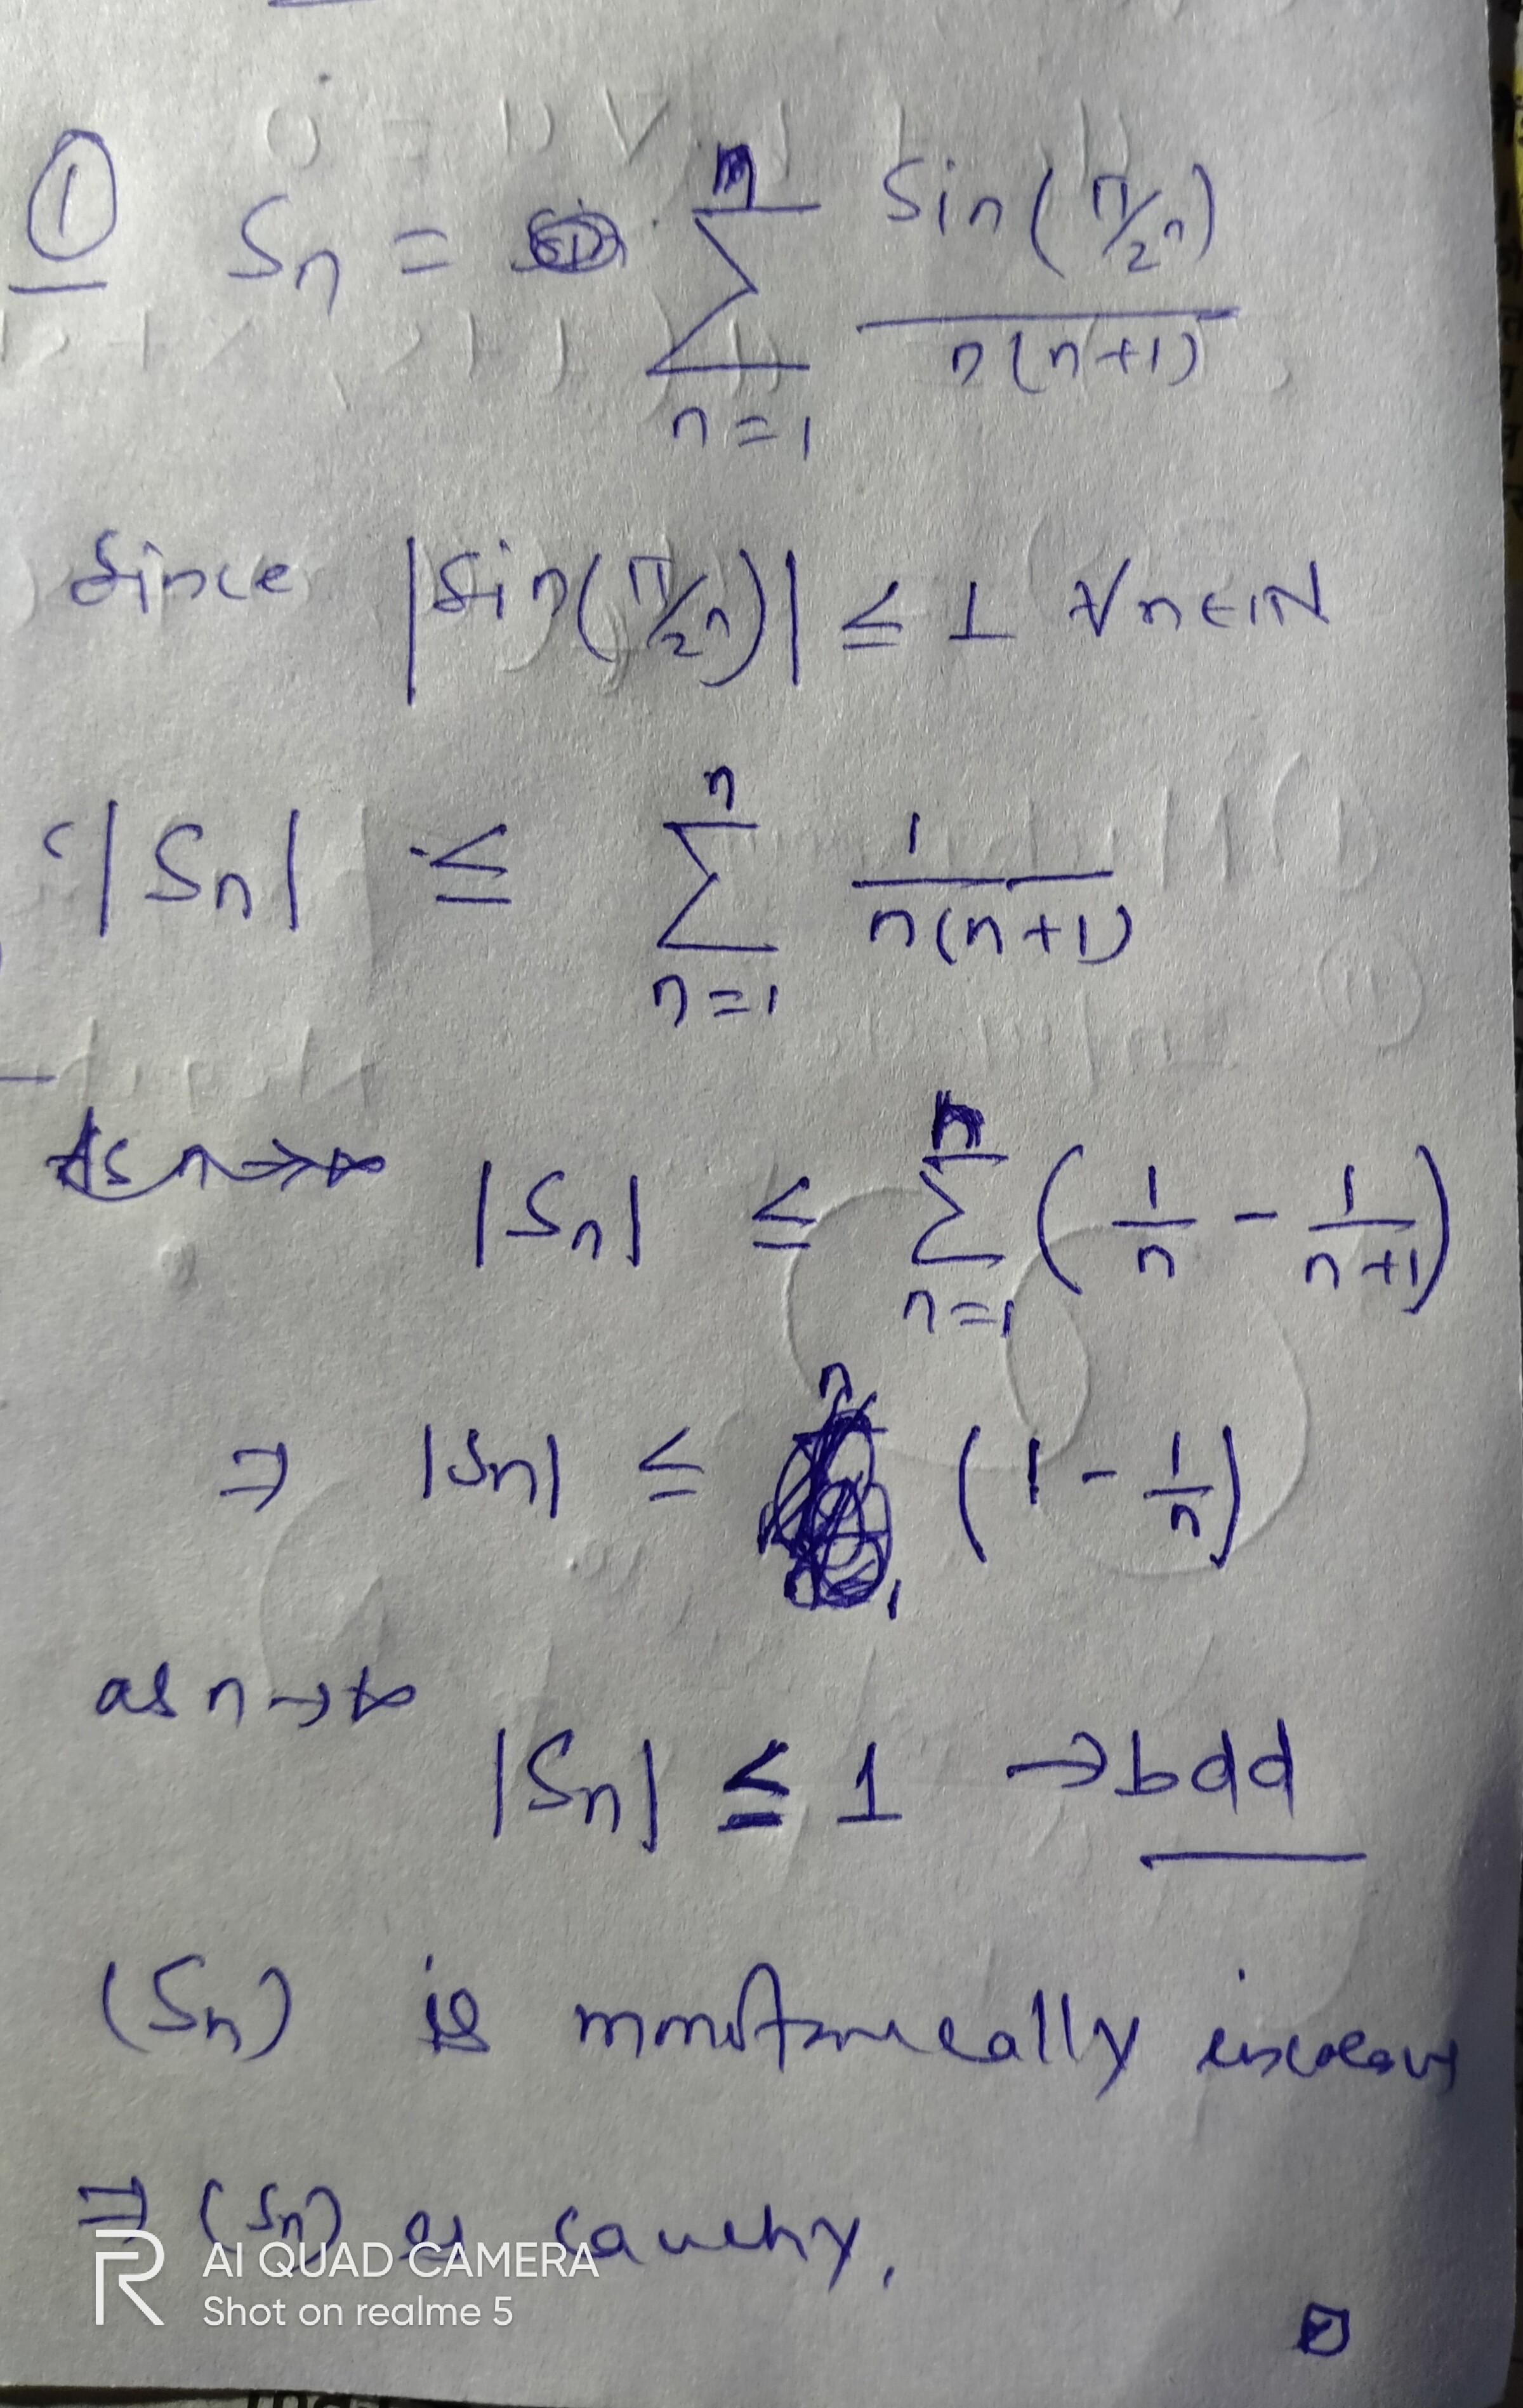 ① Sₙ = Σₙ₌₁ⁿ Sin(π/2 n) / n(n+1)
Since |Sin(π/2 n)| ≤ 1 ∀ n ∈ ℕ
|Sₙ| ≤ Σₙ₌₁ⁿ 1 / n(n+1)
|Sₙ| ≤ Σₙ₌₁ⁿ (1/n - 1/n+1)
⇒ |Sₙ| ≤ (1 - 1/n)
as n → ∞
|Sₙ| ≤ 1 → bdd
(Sₙ) is monotonically
⇒ (Sₙ) is cauchy.
AI QUAD CAMERA
Shot on realme 5